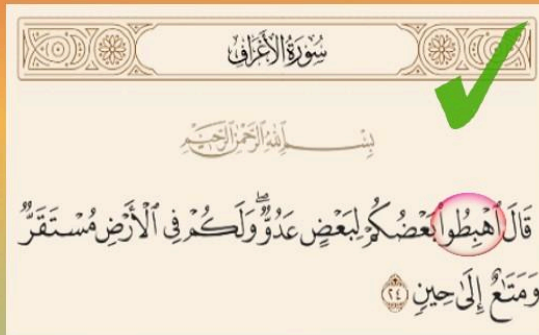 سُورَةُ الأَعْرَافِ
بِسْمِ اللَّهِ الرَّحْمَٰنِ الرَّحِيمِ
قَالَ ٱهْبِطُوا۟ بَعْضُكُمْ لِبَعْضٍ عَدُوٌّ ۖ وَلَكُمْ فِى ٱلْأَرْضِ مُسْتَقَرٌّ
وَمَتَـٰعٌ إِلَىٰ حِينٍ ٢٤